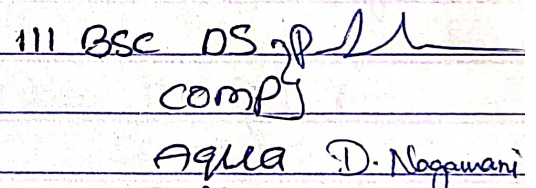 III BSC DS
COMP
Aqua D. Nagamani